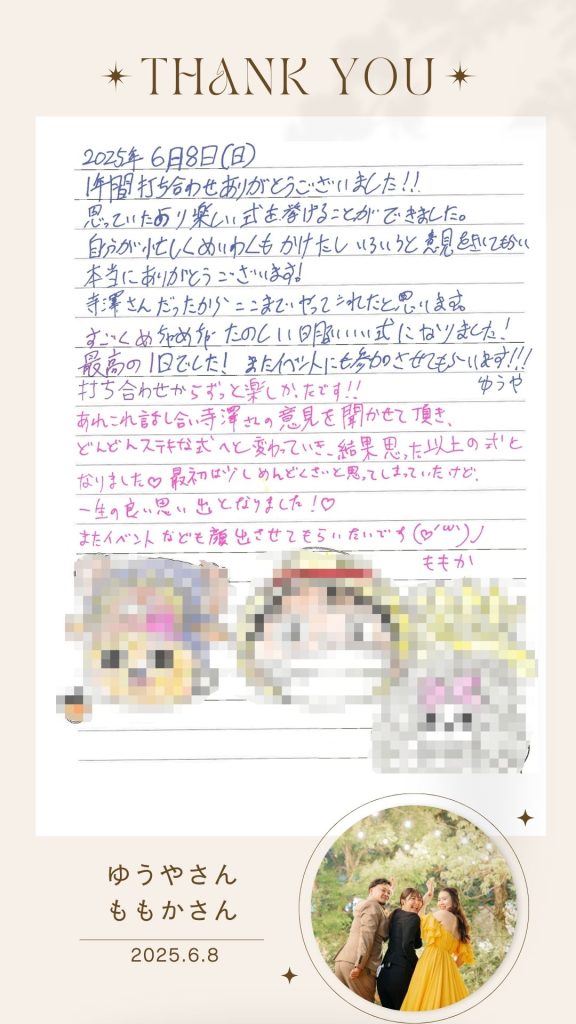 THANK YOU
2025年6月8日(日)
1年間打ち合わせありがとうございました!!
思っていたより楽しい式を挙げることができました。
自分が忙しくめいわくもかけたし いろいろと意見をきいてもらい
本当にありがとうございます!
寺澤さんだったからここまでやってこれたと思います。
すごくめちゃめちゃたのしい日 いい式になりました!
最高の1日でした! またイベントにも参加させてもらいます!!!
ゆうや
打ち合わせからずっと楽しかったです!!
あれこれ話し合い寺澤さんの意見を聞かせて頂き、
どんどんステキな式へと変わっていき、結果思った以上の式と
なりました♡ 最初は少しめんどくさいと思ってしまっていたけど、
一生の良い思い出となりました!♡
またイベントなども顔出させてもらいたいです(♡'ω')ノ
ももか
ゆうやさん
ももかさん
2025.6.8